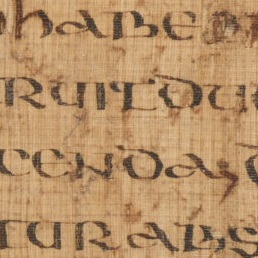 habe
ruitdu
cenda
turabs